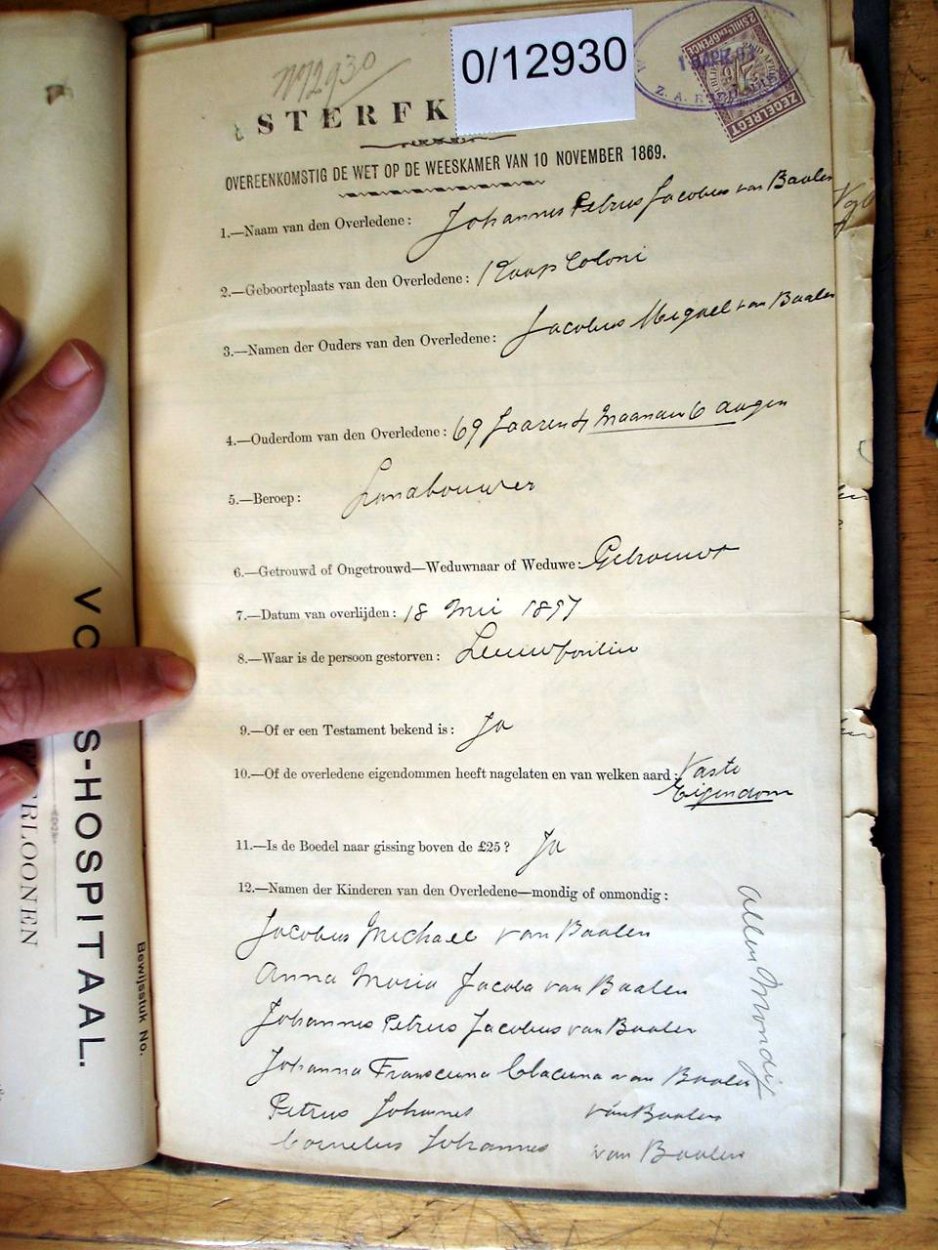 N12930
0/12930
2 SHIL. EN 6 PENCE
ZEGELREGT
STERFK
OVEREENKOMSTIG DE WET OP DE WEESKAMER VAN 10 NOVEMBER 1869.
1.—Naam van den Overledene: Johannes Petrus Jacobus van Baalen
2.—Geboorteplaats van den Overledene: Kaap Coloni
3.—Namen der Ouders van den Overledene: Jacobus Migael van Baalen
4.—Ouderdom van den Overledene: 69 Jaaren 4 Maanan 6 dagen
5.—Beroep: Landbouwer
6.—Getrouwd of Ongetrouwd—Weduwnaar of Weduwe: Getrouwt
7.—Datum van overlijden: 18 Mei 1897
8.—Waar is de persoon gestorven: Leeuwfontein
9.—Of er een Testament bekend is: Ja
10.—Of de overledene eigendommen heeft nagelaten en van welken aard: Vaste
Eigendom
11.—Is de Boedel naar gissing boven de £25? Ja
12.—Namen der Kinderen van den Overledene—mondig of onmondig:
Jacobus Michael van Baalen
Anna Maria Jacoba van Baalen
Johannes Petrus Jacobus van Baalen
Johanna van Baalen
Petrus Johannes van Baalen
Cornelus Johannes van Baalen
Allen Mondig
VO S-HOSPITAAL.
ERLOONEN
Bewijsstuk No.